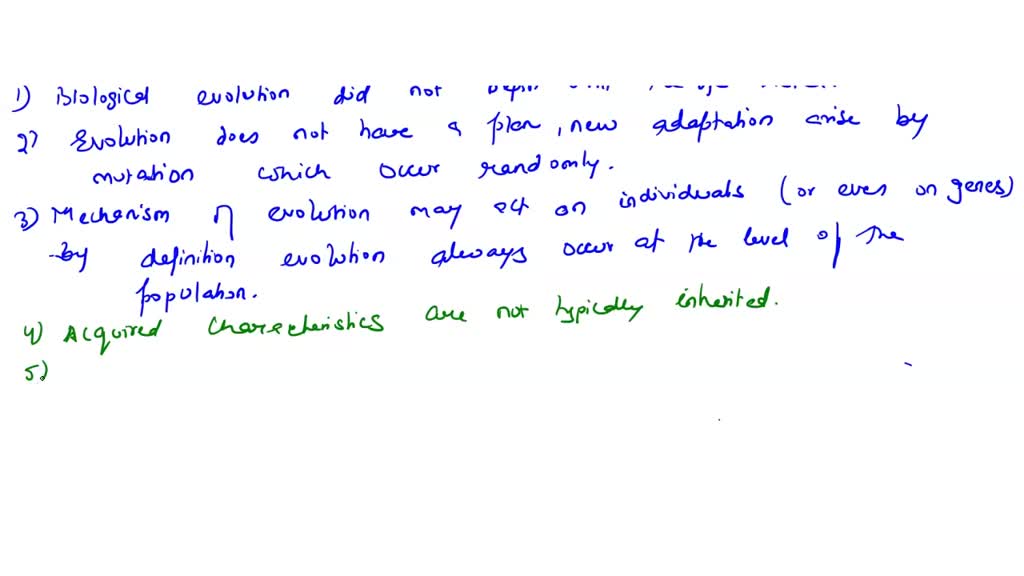 1) Biological evolution did not
2) Evolution does not have a plan, new adaptation arise by
mutation which occur randomly.
3) Mechanism of evolution may act on individuals (or even on genes)
by definition evolution always occur at the level of the
population.
4) Acquired characteristics are not typically inherited.
5)